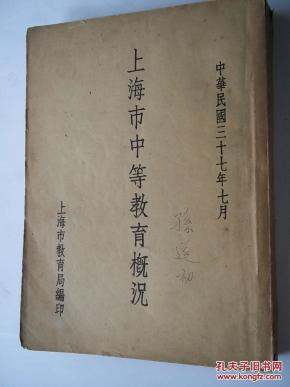 中華民國三十七年七月
上海市中等教育概況
上海市教育局編印
孔夫子旧书网